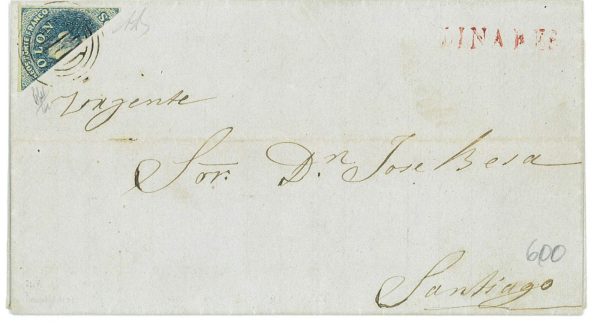 COLON
LINARES
Urgente
Sor. Dn Jose Besa
600
Santiago